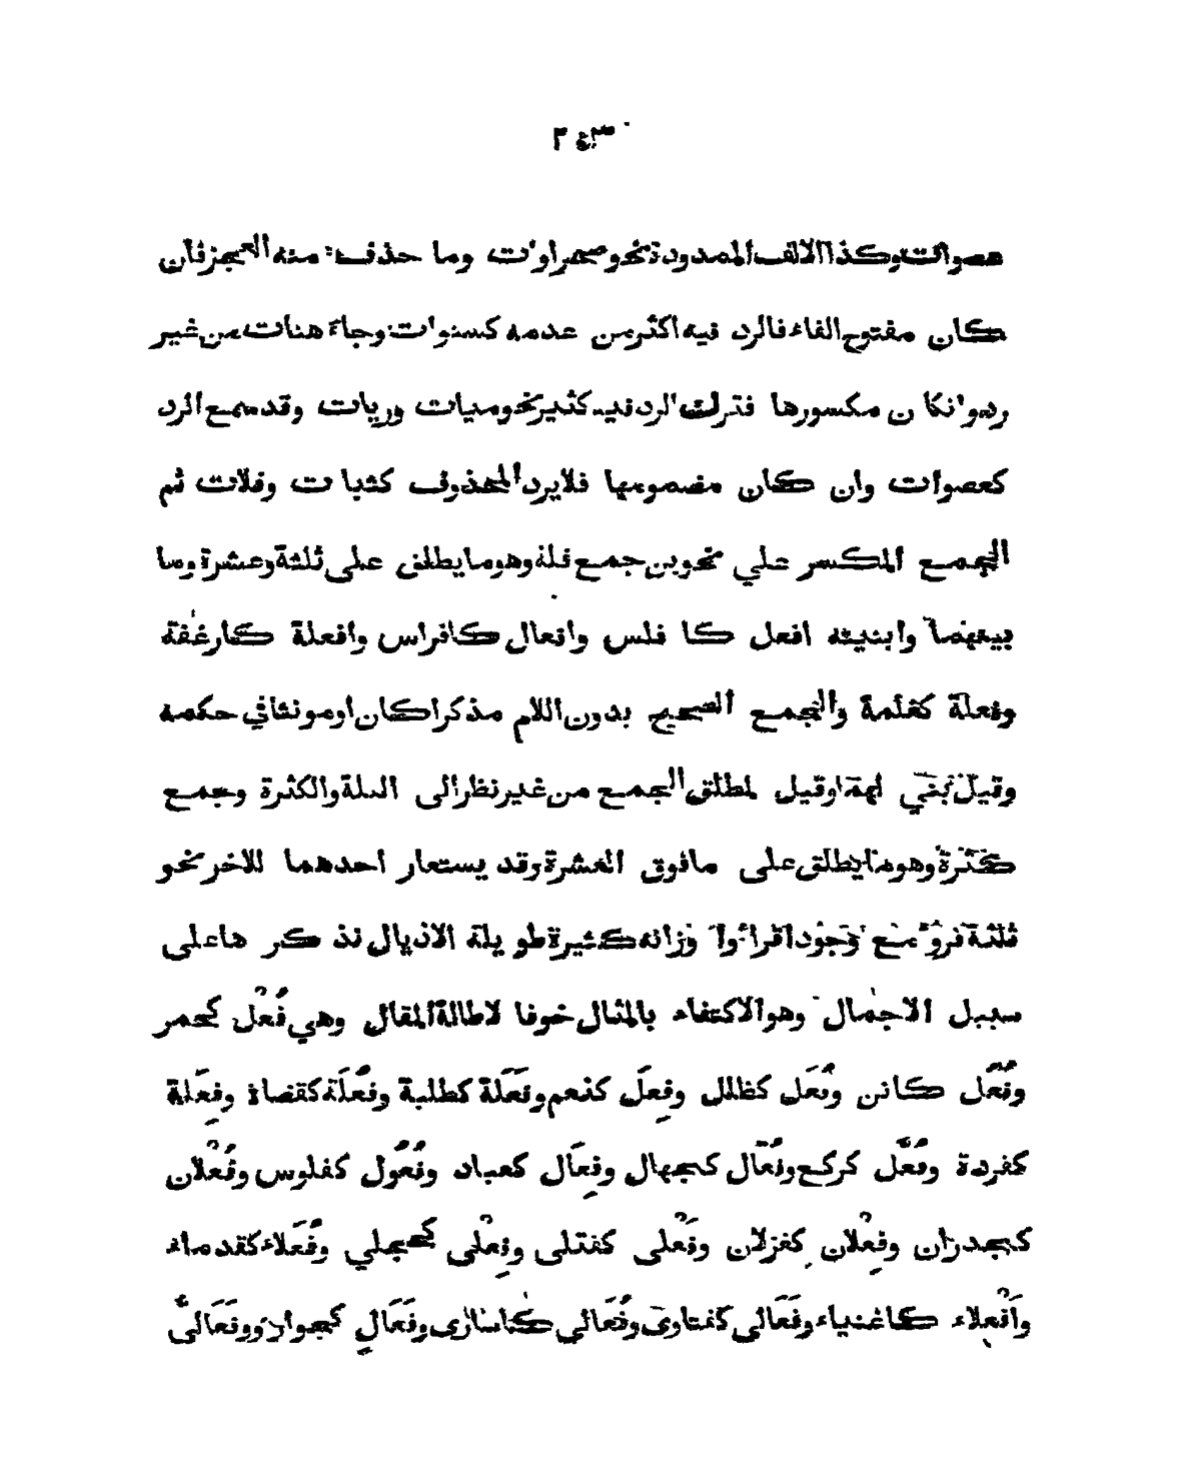 ٣٤٣
عصوات وكذا الالف الممدودة نحو صحراوات وما حذف منه العجز فان
كان مفتوح الفاء فالرد فيه اكثر من عدمه كسنوات وجاء هنات من غير
رد وان كان مكسورها فترك الرد فيه كثير نحو ميات وريات وقد سمع الرد
كعصوات وان كان مضمومها فلا يرد المحذوف كثبات وقلات ثم
الجمع المكسر علي نحوين جمع قلة وهو ما يطلق على ثلثة وعشرة وما
بينهما وابنيته افعل كا فلس وافعال كافراس وافعلة كارغفة
وفعلة كغلمة والجمع الصحيح بدون اللام مذكرا كان او مونثا في حكمه
وقيل لمطلق الجمع من غير نظر الى القلة والكثرة وجمع
كثرة وهو ما يطلق على مافوق العشرة وقد يستعار احدهما للاخر نحو
ثلثة قروء مع وجود اقراء واوزانه كثيرة طويلة الاذيال نذكرها على
سبيل الاجمال وهو الاكتفاء بالمثال خوفا لاطالة المقال وهي فُعْل كحمر
وفُعُل ككتب وفُعَل كظلل وفِعَل كنعم وفَعَلَة كطلبة وفُعَلَة كقضاة وفِعَلة
كقردة وفُعَّل كركع وفُعّال كجهال وفِعَال كعباد وفُعُول كفلوس وفُعْلان
كجدران وفِعْلان كغزلان وفَعْلى كقتلى وفِعْلى كحجلي وفُعَلاء كقدماء
وَأَفْعِلاء كاغنياء وفَعَالى كفتاوى وفُعَالي كاسارى وفَعَالٍ كجوار وفَعَالىّ